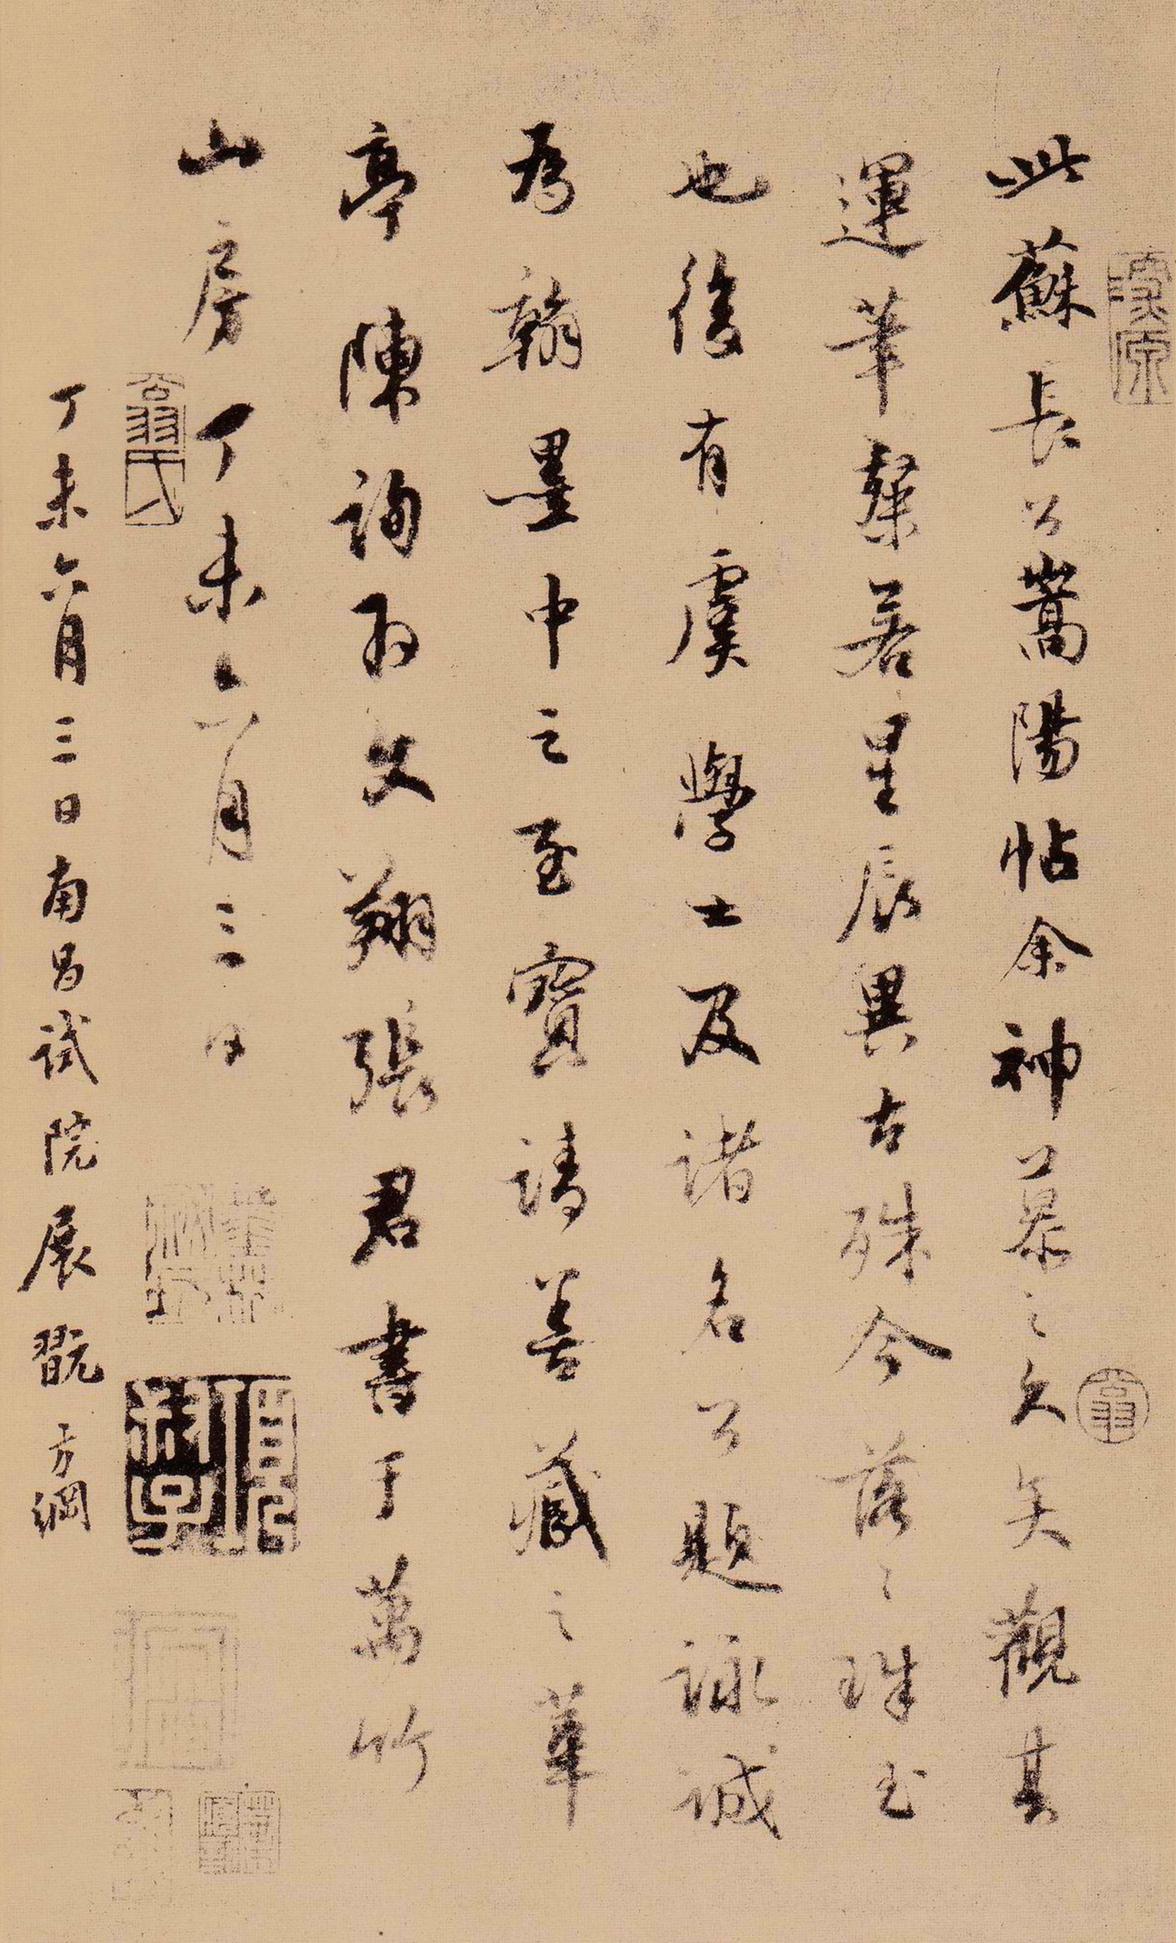 此蘇長公嵩陽帖余神慕之久矣觀其
運筆粲若星辰異古殊今落之珠玉
也後有虞學士及諸名公題詠誠
為翰墨中之至寶請善藏之華
亭陳詢為文翔張君書于萬竹
山房丁未六月三日
丁未六月三日南昌試院展翫方綱
翁氏